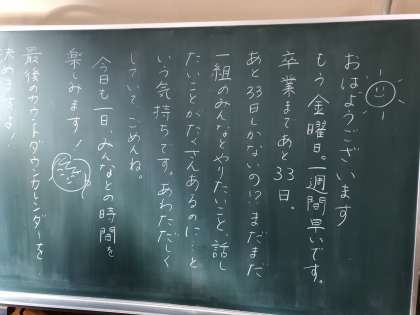 おはようございます
もう金曜日。一週間早いです。
卒業まであと33日。
あと33日しかないの!?まだまだ
一組のみんなとやりたいこと、話し
たいことがたくさんあるのに…と
いう気持ちです。あわただしく
していて、ごめんね。
今日も一日、みんなとの時間を
楽しみます!
最後のカウントダウンカレンダーを
決めますよ!